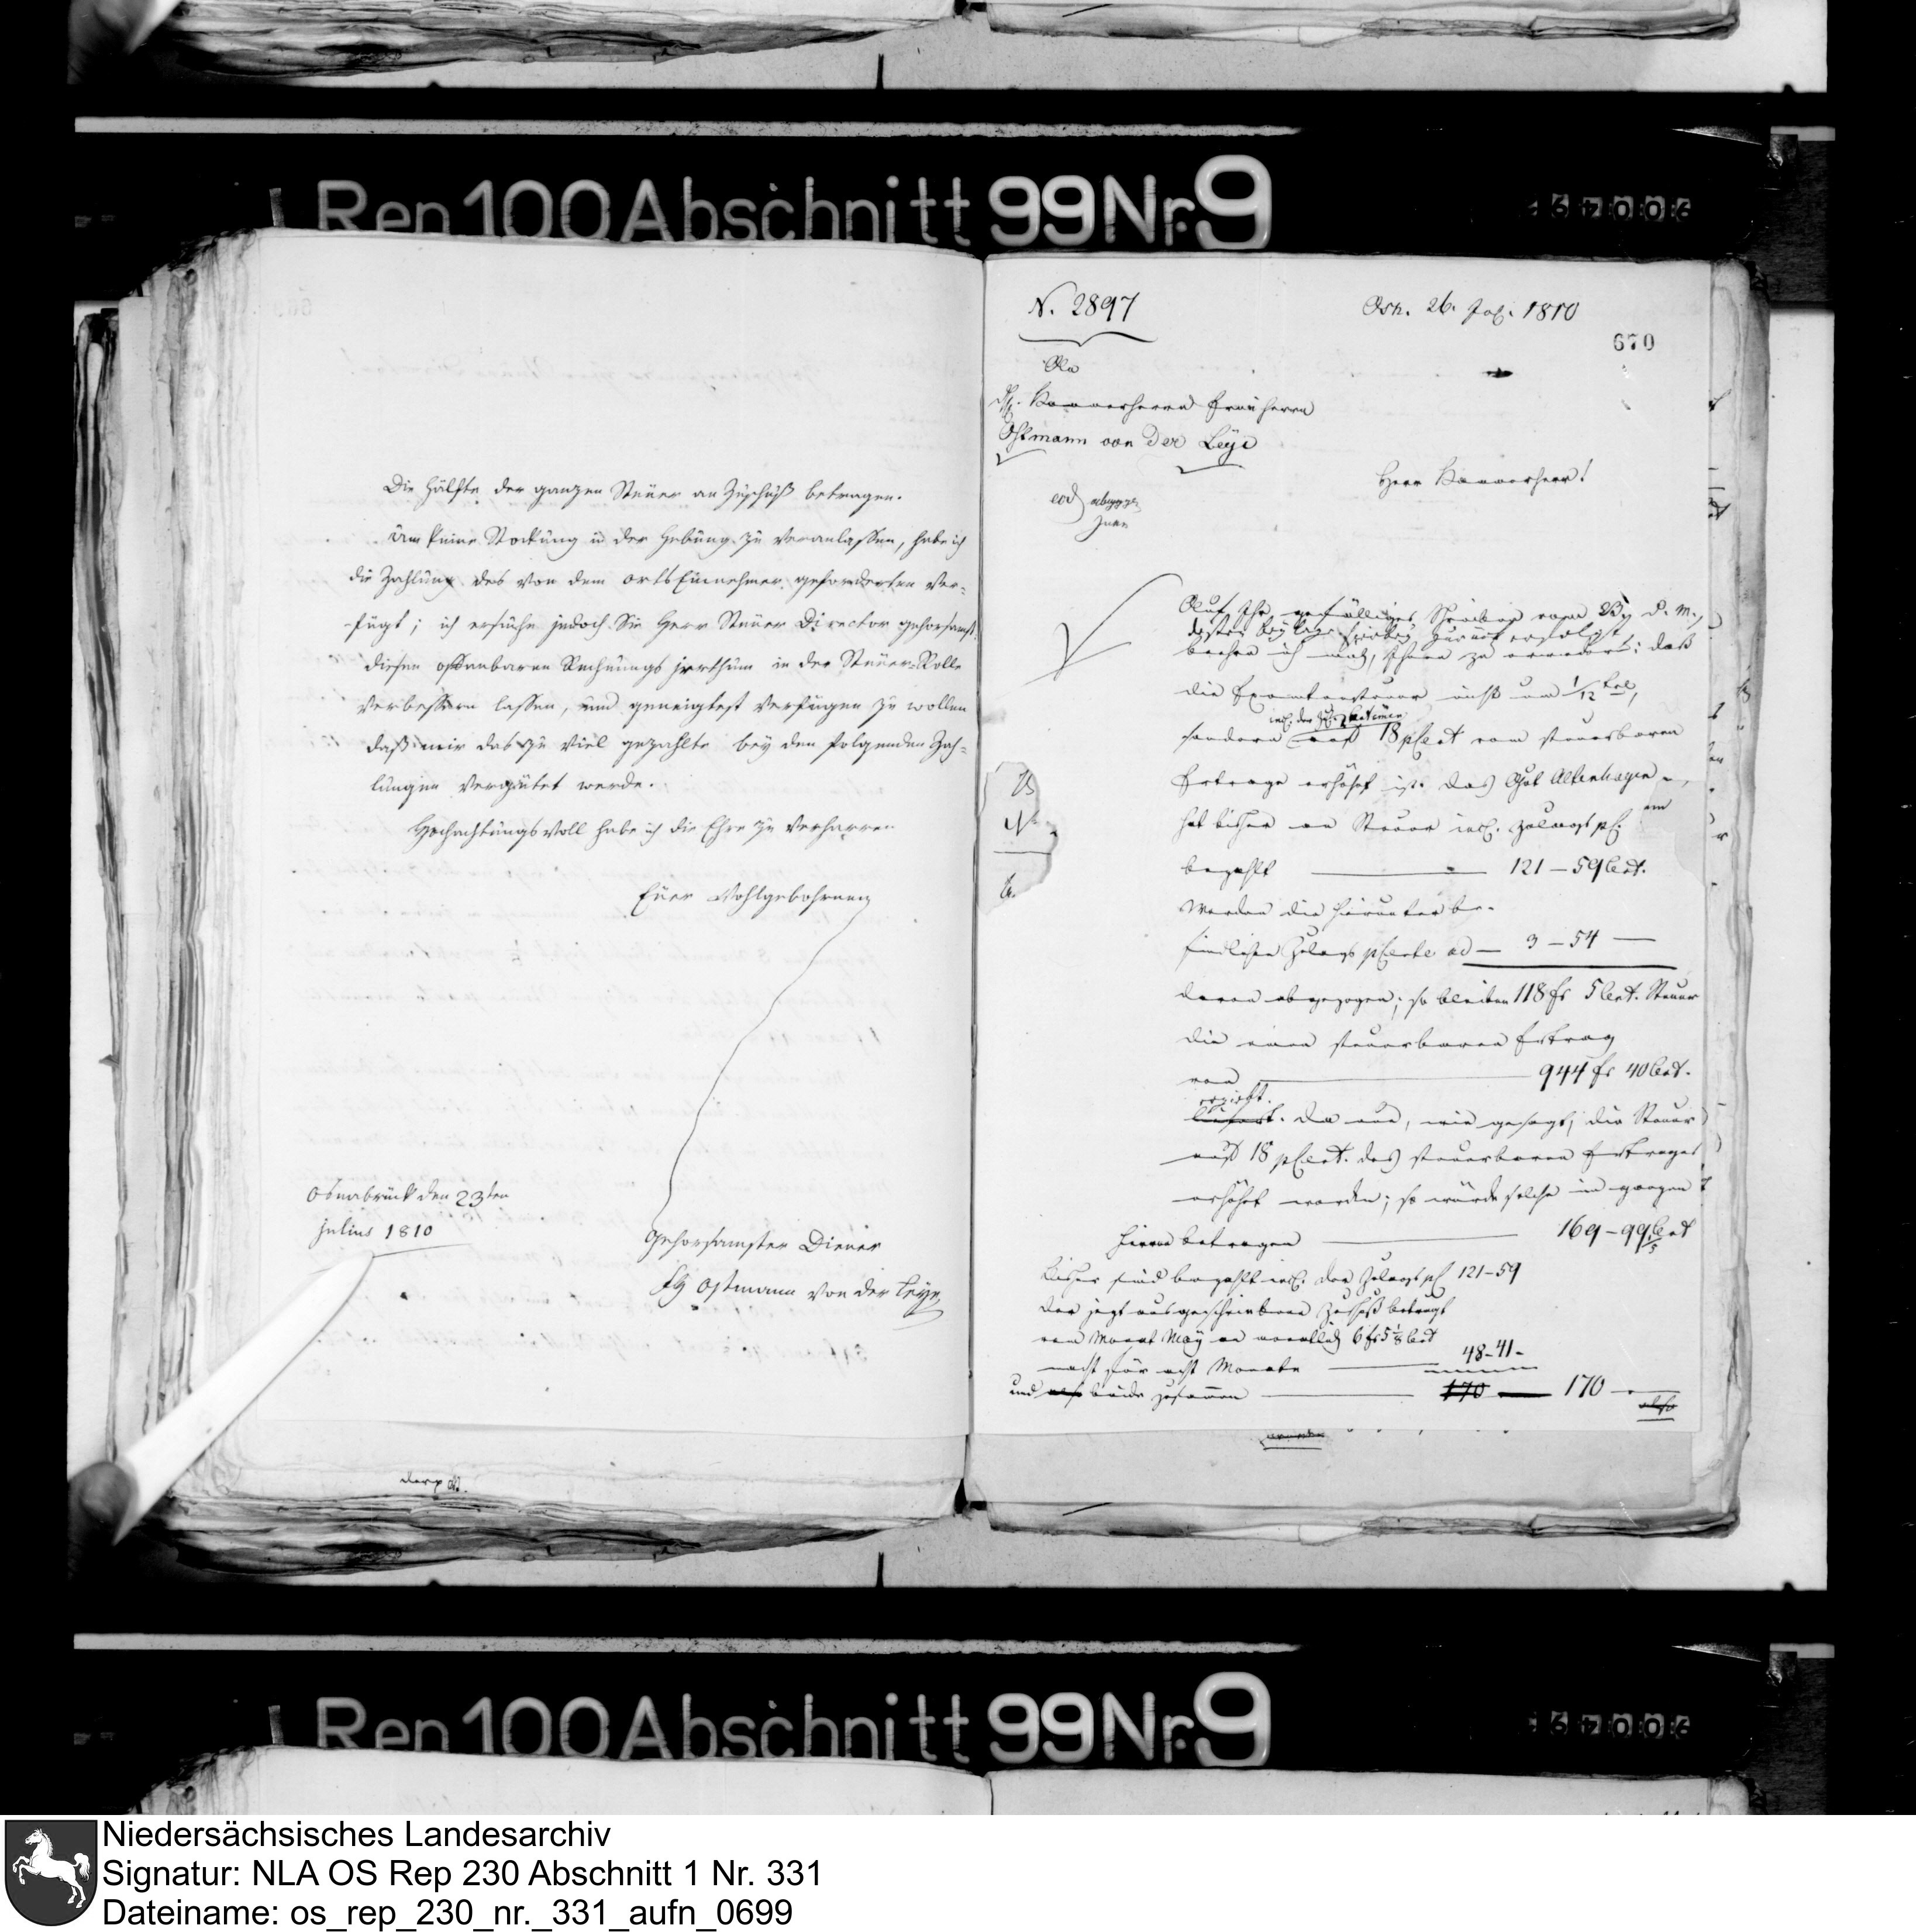 Rep 100 Abschnitt 99 Nr. 9
die Hälfte der ganzen Steüer an Zuschuß betragen.
Um keine Stockung in der Hebung zu veranlassen, habe ich
die Zahlung des von dem Orts Einnehmer geforderten ver-
fügt; ich ersuche jedoch Sie Herr Steüer Director gehorsamst
diesen offenbaren Rechnungs jrrthum in der Steüer-Rolle
verbessern lassen, und geneigtest verfügen zu wollen
daß mir das zu viel gezahlte bey den folgenden Zah-
lungen vergütet werde.
Hochachtungsvoll habe ich die Ehre zu verharren
Euer Wohlgebohrnen
Osnabrück den 23ten
Julius 1810
Gehorsamster Diener
Ostmann von der Leye
N. 2897
Osn. 26. Jul. 1810
670
An
H. Kammerherrn Freiherrn
Ostmann von der Leye
Herr Kammerherr!
Auf Ihr gefälliges Schreiben vom 23 d. M.,
dessen Beylage hierbey zurück erfolgt
beehre ich mich, Ihnen zu erwiedern: daß
die Exemtensteuer nicht um 1/12tel,
incl. der
sondern auf 18 pCent vom steuerbaren
Ertrage erhöhet ist. Das Gut Altenhagen
hat bisher an Steuer incl. Zulagspf.
bezahlt 121 — 59 Cent.
Werden die hierunter be-
findlichen Zulags pCente ad — 3 — 54 —
davon abgezogen; so bleiben 118 fr 5 Cent. Steuer
die einen steuerbaren Ertrag
von 944 fr 40 Cent.
liefert. Da nun, wie gesagt, die Steuer
auf 18 pCent. des steuerbaren Ertrages
erhöhet worden; so würde solche im ganzen
hievon betragen 169 — 99 Cent
Bisher sind bezahlt incl. der Zulagspf 121 — 59
Der jezt ausgeschriebene Zuschuß beträgt
vom Monat May an monatlich 6 fr 5 1/8 Cent
macht für acht Monate 48 — 41 —
und also beide zusammen 170 170
also
Rep 100 Abschnitt 99 Nr. 9
Niedersächsisches Landesarchiv
Signatur: NLA OS Rep 230 Abschnitt 1 Nr. 331
Dateiname: os_rep_230_nr._331_aufn_0699